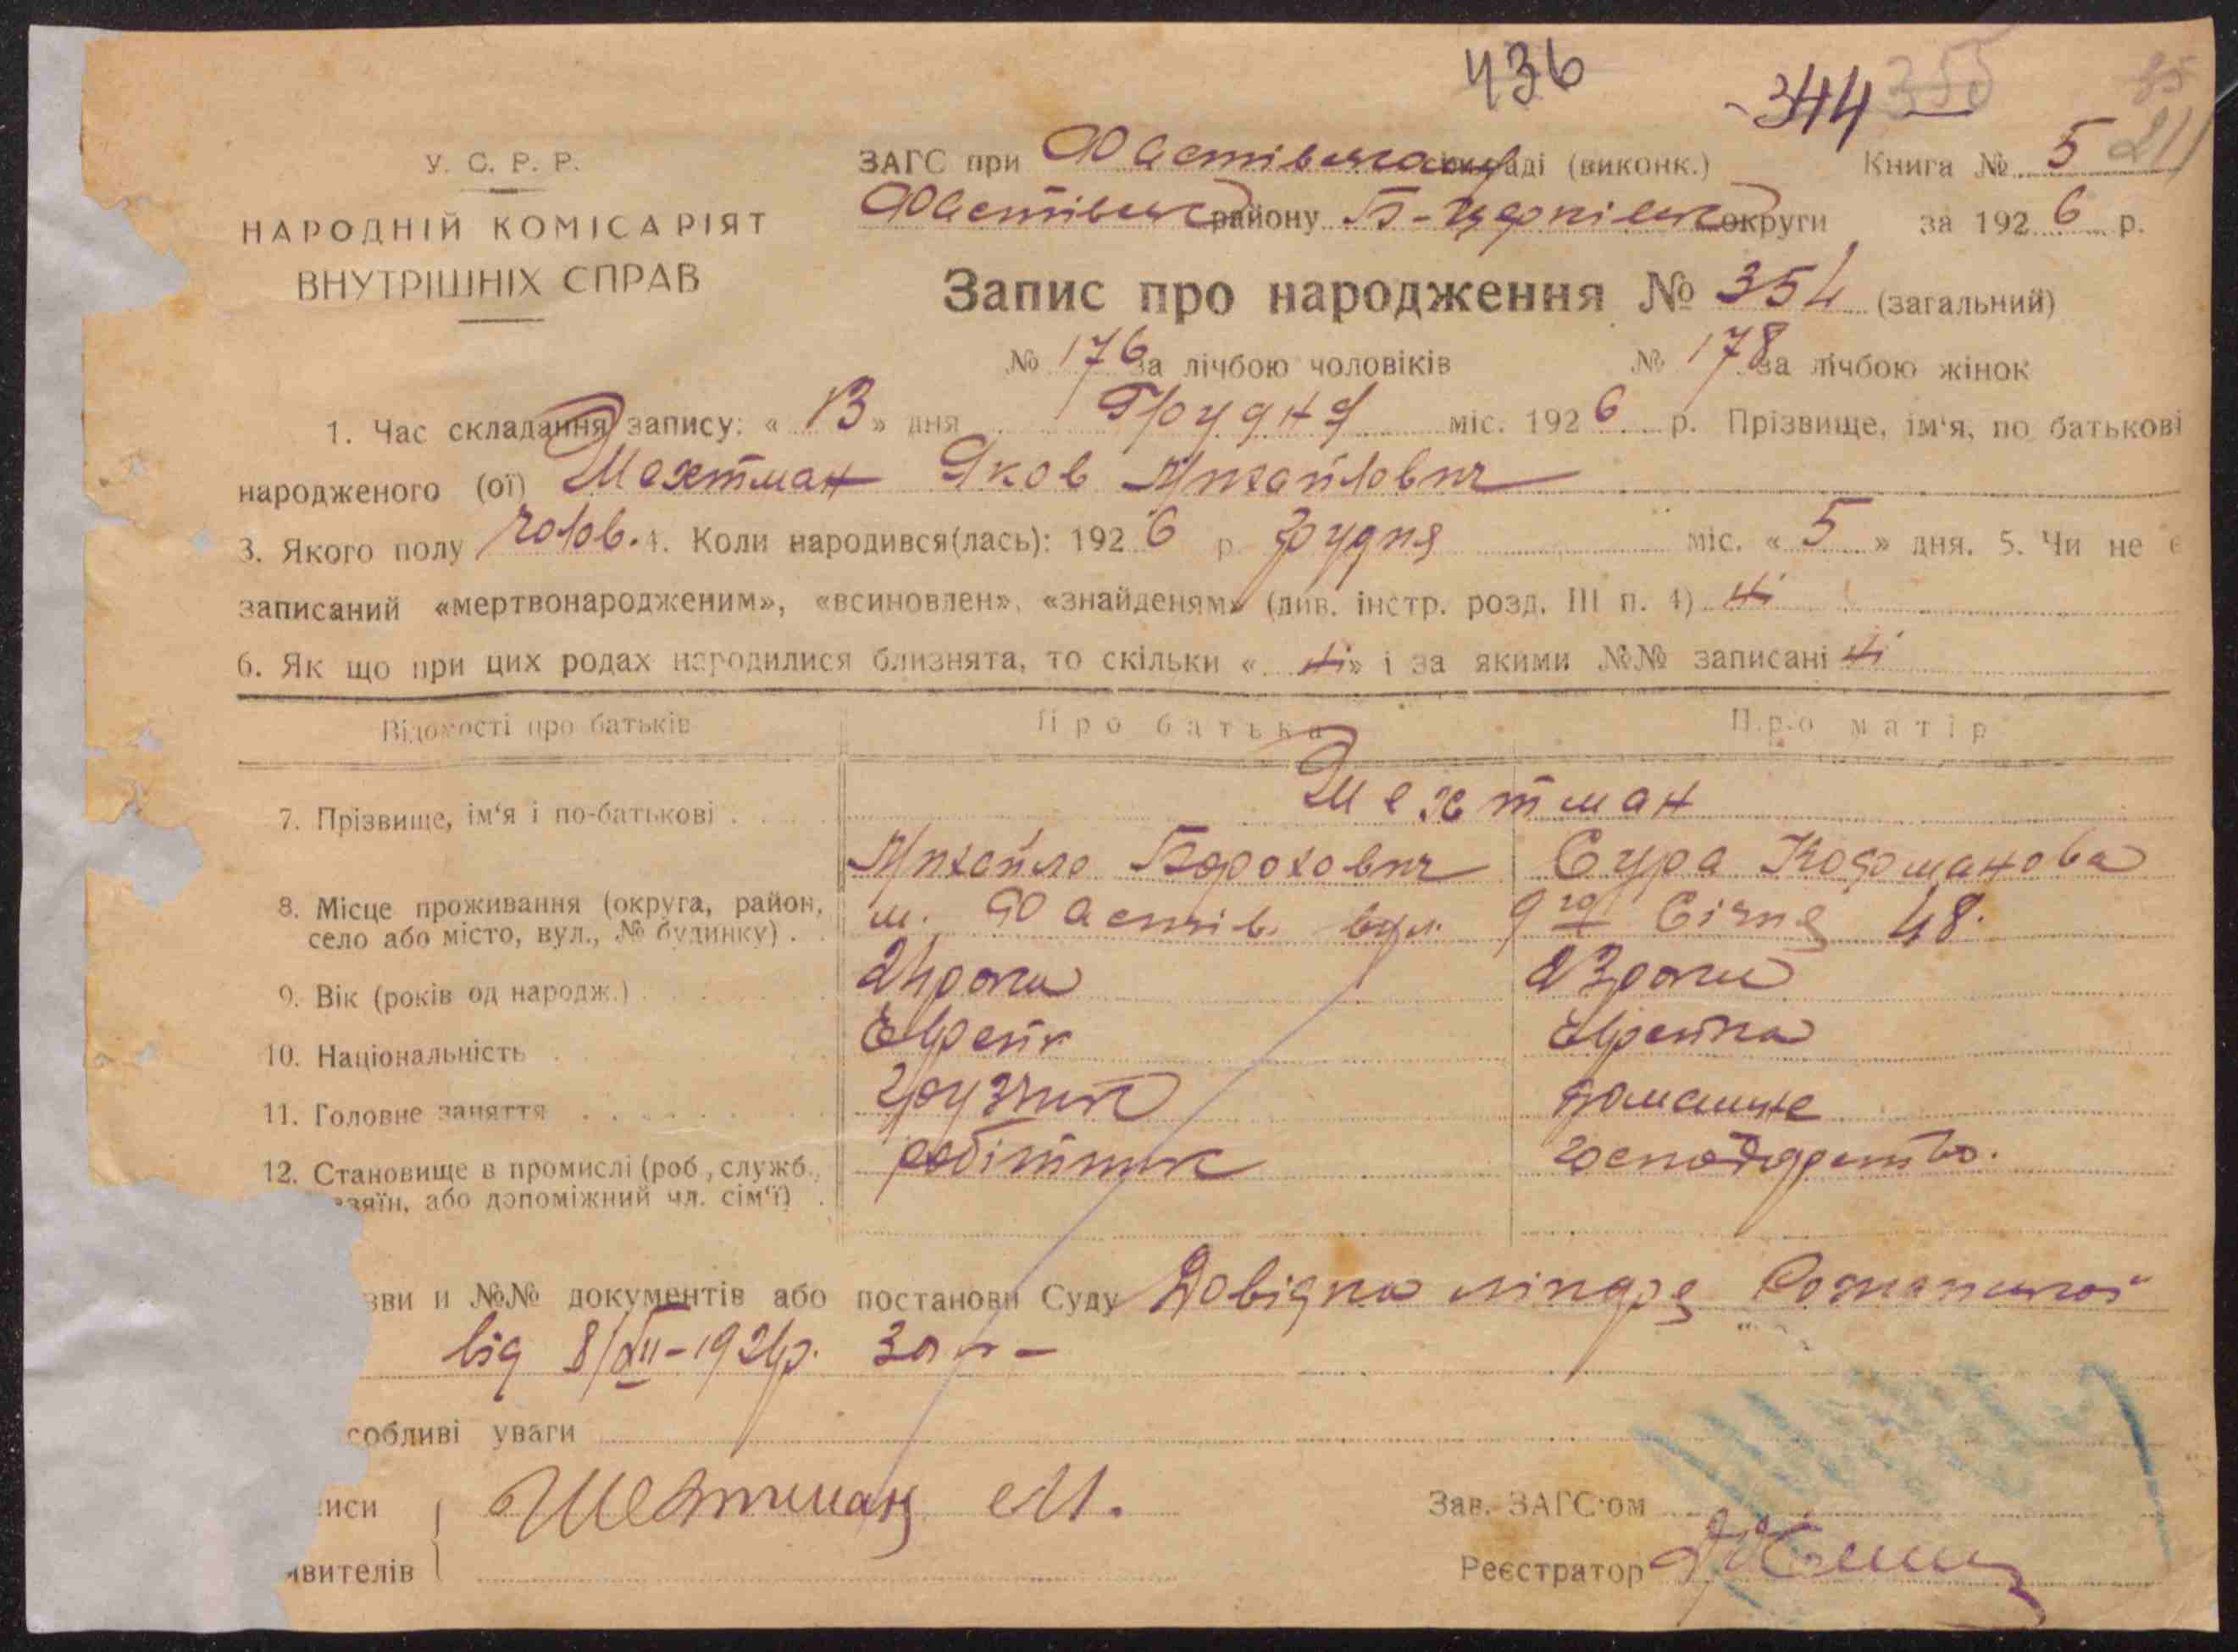 436
344 355
У. С. Р. Р.
НАРОДНІЙ КОМІСАРІЯТ
ВНУТРІШНІХ СПРАВ
ЗАГС при Фастівськ раді (виконк.) Книга № 5
Фастівськ району Б-Церківськ округи за 192 6 р.
Запис про народження № 354 (загальний)
№ 176 за лічбою чоловіків № 178 за лічбою жінок
1. Час складання запису: « 13 » дня Грудня міс. 192 6 р. Прізвище, ім'я, по батькові
народженого (ої) Шехтман Яков Михайлович
3. Якого полу чолов. 4. Коли народився(лась): 192 6 р. грудня міс. « 5 » дня. 5. Чи не є
записаний «мертвонародженим», «всиновлен», «знайденям» (див. інстр. розд. III п. 4) ні
6. Як що при цих родах народилися близнята, то скільки « ні » і за якими №№ записані ні
Відомості про батьків Про батька Про матір
Шехтман
7. Прізвище, ім'я і по-батькові Михайло Борохович Сура
8. Місце проживання (округа, район, м. Фастів. вул. 9го Січня 48.
село або місто, вул., № будинку)
9. Вік (років од народж.) 24 роки 23 роки
10. Національність Єврей Єврейка
11. Головне заняття грузчик домашнє
12. Становище в промислі (роб., служб., робітник господарство.
зяїн, або допоміжний чл. сім'ї)
зви и №№ документів або постанови Суду Довідка лікаря
від 8/XII-1926р. за № -
собливі уваги
иси Шехтман М. Зав. ЗАГС'ом
явителів Реєстратор